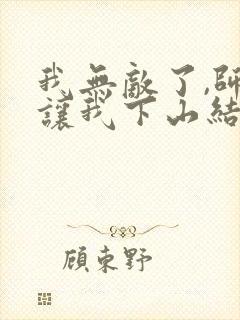 我無敵了,師
讓我下山結
顧東野